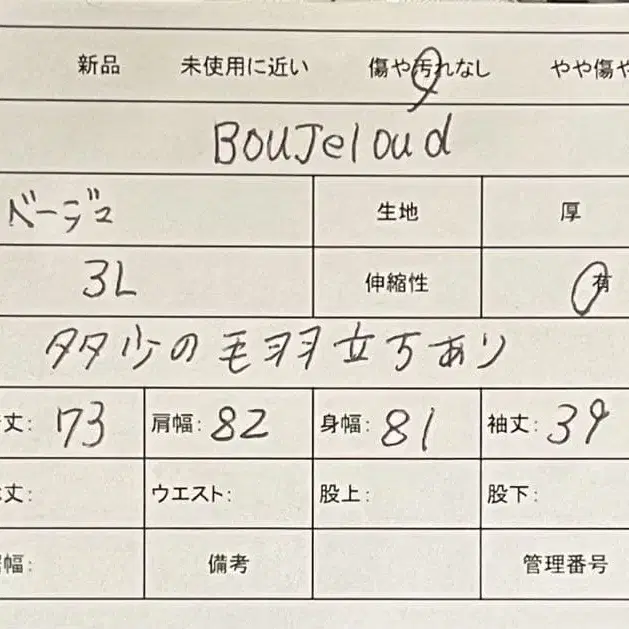 新品 未使用に近い 傷や汚れなし やや傷や
BOUJeloud
ベージュ 生地 厚
3L 伸縮性 有
多少の毛羽立ちあり
丈: 73 肩幅: 82 身幅: 81 袖丈: 39
丈: ウエスト: 股上: 股下:
幅: 備考 管理番号